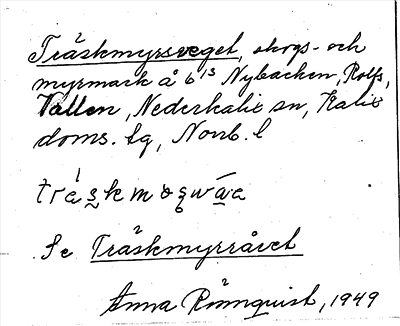 Träskmyrsveget, skogs- och
myrmark å 6¹³ Nybacken, Rolfs,
Vallen, Nederkalix sn, Kalix
doms. lg, Norrb. l
Se Träskmyrråvet
Anna Rönnquist, 1949